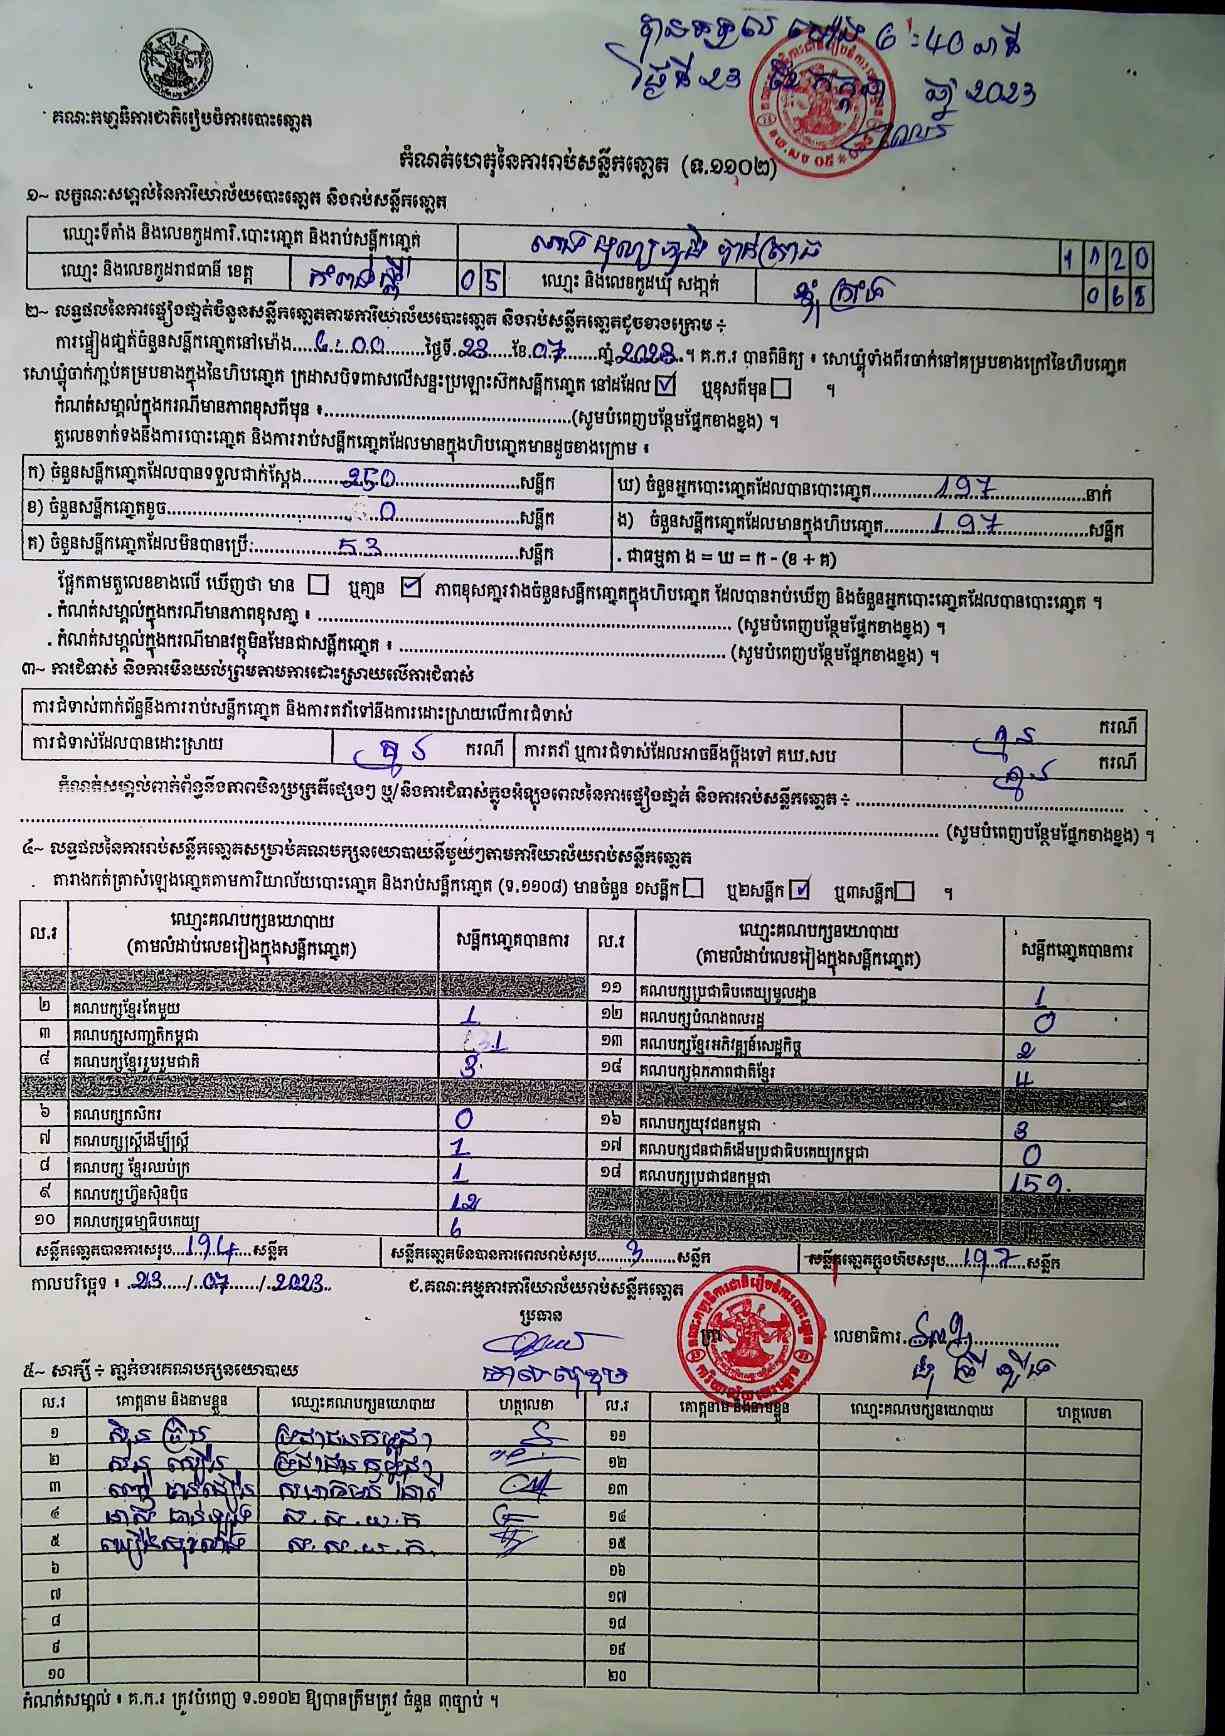 បានទទួល ម៉ោង 6:40 នាទី
ថ្ងៃទី 23 ខែ កក្កដា ឆ្នាំ 2023
គណៈកម្មាធិការជាតិរៀបចំការបោះឆ្នោត
កំណត់ហេតុនៃការរាប់សន្លឹកឆ្នោត (ទ.១១០២)
១~ លក្ខណៈសម្គាល់នៃការិយាល័យបោះឆ្នោត និងរាប់សន្លឹកឆ្នោត
ឈ្មោះទីតាំង និងលេខកូដការិ.បោះឆ្នោត និងរាប់សន្លឹកឆ្នោត 1120
ឈ្មោះ និងលេខកូដរាជធានី ខេត្ត កំពង់ស្ពឺ 05 ឈ្មោះ និងលេខកូដឃុំ សង្កាត់ 068
២~ លទ្ធផលនៃការផ្ទៀងផ្ទាត់ចំនួនសន្លឹកឆ្នោតតាមការិយាល័យបោះឆ្នោត និងរាប់សន្លឹកឆ្នោតដូចខាងក្រោម ៖
ការផ្ទៀងផ្ទាត់ចំនួនសន្លឹកឆ្នោតនៅម៉ោង....:00....ថ្ងៃទី.23..ខែ.07....ឆ្នាំ 2023.។ គ.ក.រ បានពិនិត្យ ៖ សោឃ្នុំទាំងពីរចាក់នៅគម្របខាងក្រៅនៃហិបឆ្នោត
សោឃ្នុំចាក់ភ្ជាប់គម្របខាងក្នុងនៃហិបឆ្នោត ក្រដាសបិទពាសលើសន្ទះប្រឡោះស៊កសន្លឹកឆ្នោត នៅដដែល ☑ ឬខុសពីមុន ☐ ។
កំណត់សម្គាល់ក្នុងករណីមានភាពខុសពីមុន ៖........(សូមបំពេញបន្ថែមផ្នែកខាងខ្នង) ។
តួលេខទាក់ទងនឹងការបោះឆ្នោត និងការរាប់សន្លឹកឆ្នោតដែលមានក្នុងហិបឆ្នោតមានដូចខាងក្រោម ៖
ក) ចំនួនសន្លឹកឆ្នោតដែលបានទទួលជាក់ស្តែង....250....សន្លឹក ឃ) ចំនួនអ្នកបោះឆ្នោតដែលបានបោះឆ្នោត....197....នាក់
ខ) ចំនួនសន្លឹកឆ្នោតខូច....0....សន្លឹក ង) ចំនួនសន្លឹកឆ្នោតដែលមានក្នុងហិបឆ្នោត....197....សន្លឹក
គ) ចំនួនសន្លឹកឆ្នោតដែលមិនបានប្រើ:....53....សន្លឹក . ជាធម្មតា ង = ឃ = ក - (ខ + គ)
ផ្អែកតាមតួលេខខាងលើ ឃើញថា មាន ☐ ឬគ្មាន ☑ ភាពខុសគ្នារវាងចំនួនសន្លឹកឆ្នោតក្នុងហិបឆ្នោត ដែលបានរាប់ឃើញ និងចំនួនអ្នកបោះឆ្នោតដែលបានបោះឆ្នោត ។
. កំណត់សម្គាល់ក្នុងករណីមានភាពខុសគ្នា ៖ ........ (សូមបំពេញបន្ថែមផ្នែកខាងខ្នង) ។
. កំណត់សម្គាល់ក្នុងករណីមានវត្ថុមិនមែនជាសន្លឹកឆ្នោត ៖ ........ (សូមបំពេញបន្ថែមផ្នែកខាងខ្នង) ។
៣~ ការជំទាស់ និងការមិនយល់ព្រមតាមការដោះស្រាយលើការជំទាស់
ការជំទាស់ពាក់ព័ន្ធនឹងការរាប់សន្លឹកឆ្នោត និងការតវ៉ាទៅនឹងការដោះស្រាយលើការជំទាស់ គ្មាន ករណី
ការជំទាស់ដែលបានដោះស្រាយ គ្មាន ករណី ការតវ៉ា ឬការជំទាស់ដែលអាចនឹងប្តឹងទៅ គឃ.សប គ្មាន ករណី
កំណត់សម្គាល់ពាក់ព័ន្ធនឹងភាពមិនប្រក្រតីផ្សេងៗ ឬ/និងការជំទាស់ក្នុងអំឡុងពេលនៃការផ្ទៀងផ្ទាត់ និងការរាប់សន្លឹកឆ្នោត ៖ ........
........ (សូមបំពេញបន្ថែមផ្នែកខាងខ្នង) ។
៤~ លទ្ធផលនៃការរាប់សន្លឹកឆ្នោតសម្រាប់គណបក្សនយោបាយនីមួយៗតាមការិយាល័យរាប់សន្លឹកឆ្នោត
តារាងកត់ត្រាសំឡេងឆ្នោតតាមការិយាល័យបោះឆ្នោត និងរាប់សន្លឹកឆ្នោត (ទ.១១០៨) មានចំនួន ១សន្លឹក ☐ ឬ២សន្លឹក ☑ ឬ៣សន្លឹក ☐ ។
ល.រ ឈ្មោះគណបក្សនយោបាយ (តាមលំដាប់លេខរៀងក្នុងសន្លឹកឆ្នោត) សន្លឹកឆ្នោតបានការ ល.រ ឈ្មោះគណបក្សនយោបាយ (តាមលំដាប់លេខរៀងក្នុងសន្លឹកឆ្នោត) សន្លឹកឆ្នោតបានការ
១១ គណបក្សប្រជាធិបតេយ្យមូលដ្ឋាន 1
២ គណបក្សខ្មែរតែមួយ 1 ១២ គណបក្សបំណងពលរដ្ឋ 0
៣ គណបក្សសញ្ជាតិកម្ពុជា 1 ១៣ គណបក្សខ្មែរអភិវឌ្ឍន៍សេដ្ឋកិច្ច 2
៤ គណបក្សខ្មែររួបរួមជាតិ 3 ១៤ គណបក្សឯកភាពជាតិខ្មែរ 4
៦ គណបក្សកសិករ 0 ១៦ គណបក្សយុវជនកម្ពុជា 3
៧ គណបក្សស្ត្រីដើម្បីស្ត្រី 1 ១៧ គណបក្សជនជាតិដើមប្រជាធិបតេយ្យកម្ពុជា 0
៨ គណបក្ស ខ្មែរឈប់ក្រ 1 ១៨ គណបក្សប្រជាជនកម្ពុជា 159.
៩ គណបក្សហ្វ៊ុនស៊ិនប៉ិច 12
១០ គណបក្សធម្មាធិបតេយ្យ 6
សន្លឹកឆ្នោតបានការសរុប...194...សន្លឹក សន្លឹកឆ្នោតមិនបានការពេលរាប់សរុប....3....សន្លឹក សន្លឹកឆ្នោតក្នុងហិបសរុប....197....សន្លឹក
កាលបរិច្ឆេទ ៖ .23..../..07..../..2023.. ជ.គណៈកម្មការការិយាល័យរាប់សន្លឹកឆ្នោត
ប្រធាន
ត្រា លេខាធិការ........
៥~ សាក្សី ៖ ភ្នាក់ងារគណបក្សនយោបាយ
ល.រ គោត្តនាម និងនាមខ្លួន ឈ្មោះគណបក្សនយោបាយ ហត្ថលេខា ល.រ គោត្តនាម និងនាមខ្លួន ឈ្មោះគណបក្សនយោបាយ ហត្ថលេខា
១ ប្រជាជនកម្ពុជា ១១
២ ប្រជាជនកម្ពុជា ១២
៣ ១៣
៤ ស.ស.យ.ក ១៤
៥ ស.ស.យ.ក. ១៥
៦ ១៦
៧ ១៧
៨ ១៨
៩ ១៩
១០ ២០
កំណត់សម្គាល់ ៖ គ.ក.រ ត្រូវបំពេញ ទ.១១០២ ឱ្យបានត្រឹមត្រូវ ចំនួន ៣ច្បាប់ ។